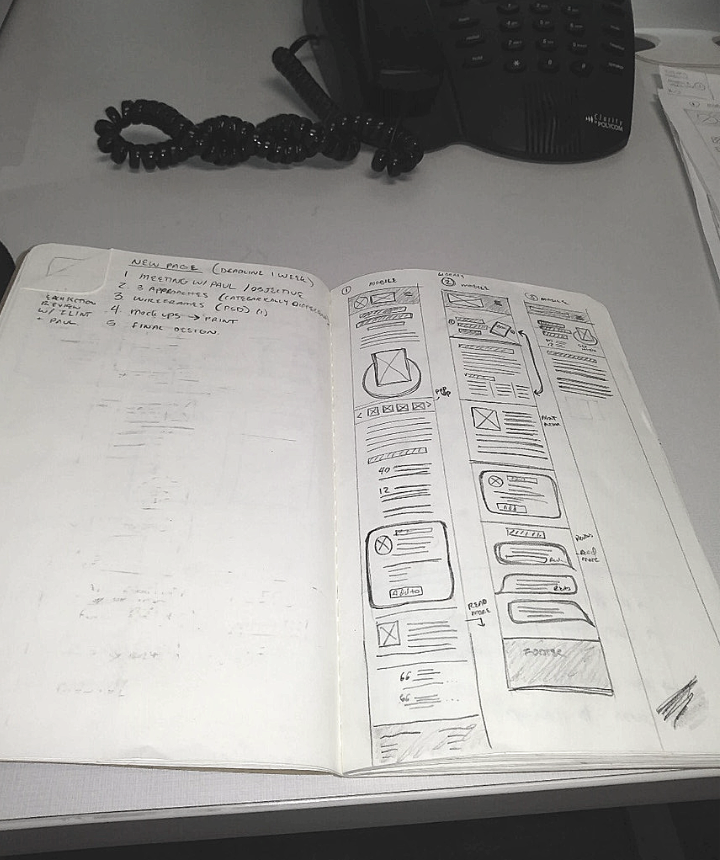 Clarity
by POLYCOM
NEW PAGE (DEADLINE 1 WEEK)
1 MEETING W/ PAUL / OBJECTIVE
2 3 APPROACHES (CATEGORICALLY DIFFERENT)
3 WIREFRAMES (PGD) (1)
4. MOCK UPS → PRINT
5 FINAL DESIGN.
REVIEW
W/ FLINT
+ PAUL
1 MOBILE
2 MOBILE
3 MOBILE
40
12
READ
MORE
66
66
FOOTER